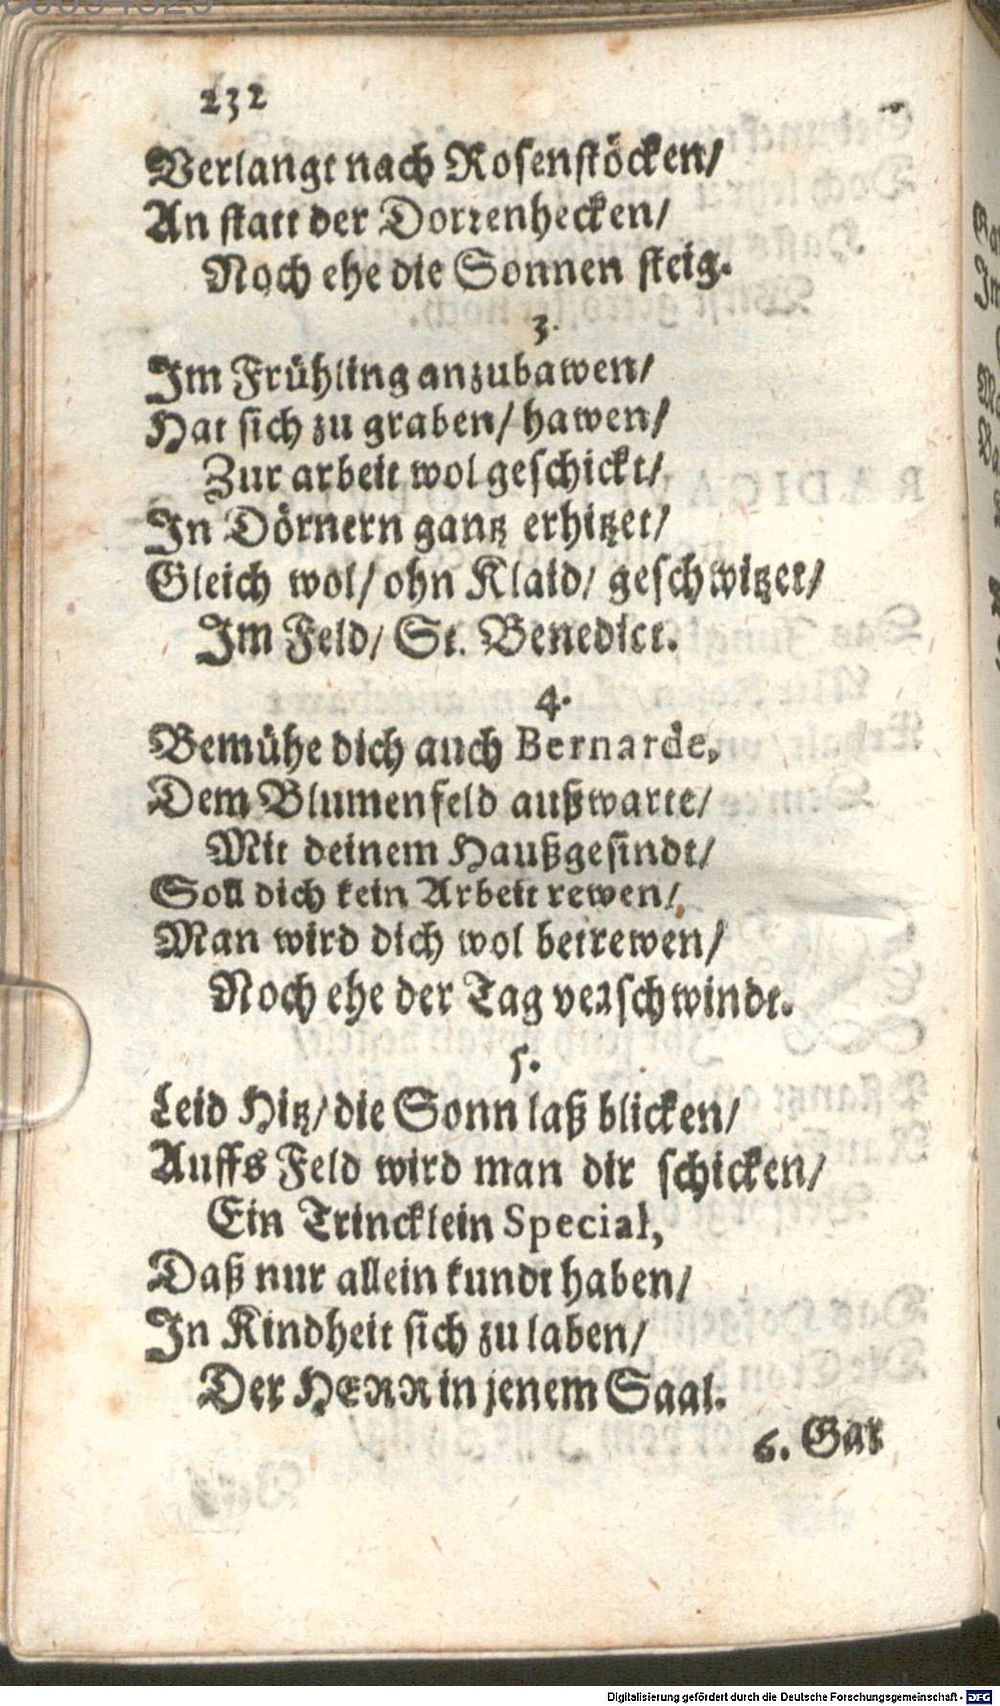 232
Verlangt nach Rosenstöcken/
An statt der Dorrenhecken/
Noch ehe die Sonnen steig.
3.
Im Frühling anzubawen/
Hat sich zu graben/ hawen/
Zur arbeit wol geschickt/
In Dörnern gantz erhitzet/
Gleich wol/ ohn Klaid/ geschwitzet/
Im Feld/ St. Benedict.
4.
Bemühe dich auch Bernarde,
Dem Blumenfeld außwarte/
Mit deinem Haußgesindt/
Soll dich kein Arbeit rewen/
Man wird dich wol betrewen/
Noch ehe der Tag verschwindt.
5.
Leid Hitz/ die Sonn laß blicken/
Auffs Feld wird man dir schicken/
Ein Trincklein Special,
Daß nur allein kundt haben/
In Kindheit sich zu laben/
Der HERR in jenem Saal.
6. Gar
Digitalisierung gefördert durch die Deutsche Forschungsgemeinschaft - DFG